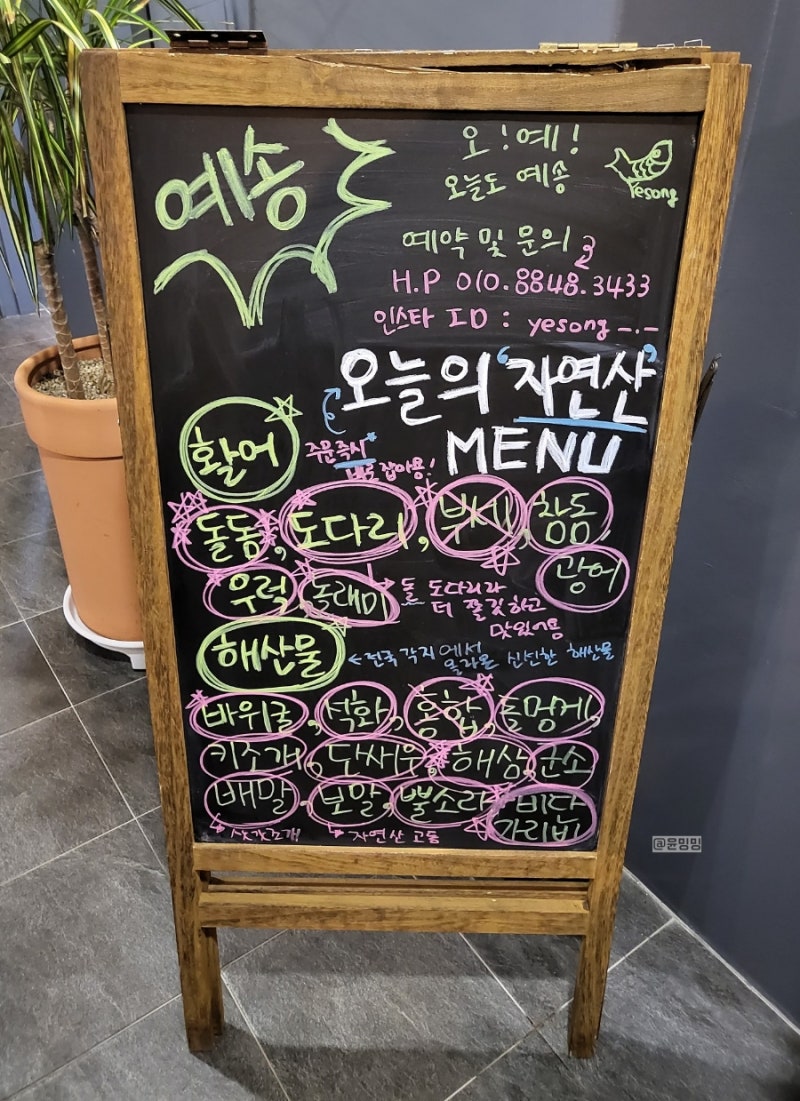 예송
오!예!
오늘도 예송
Yesong
예약 및 문의
H.P 010.8848.3433
인스타 ID : yesong_._
오늘의 '자연산'
MENU
활어
주문즉시
바로 잡아용!
돌돔, 도다리, 부세, 참돔
광어
우럭, 노래미
돌 도다리라
더 쫄깃하고
맛있어용
해산물
←전국 각지에서
올라온 신선한 해산물
바위굴, 석화, 홍합, 돌멍게,
키조개, 단새우, 해삼, 군소
배말, 보말, 뿔소라, 비단
가리비
삿갓조개
자연산 고동
@윤밍밍